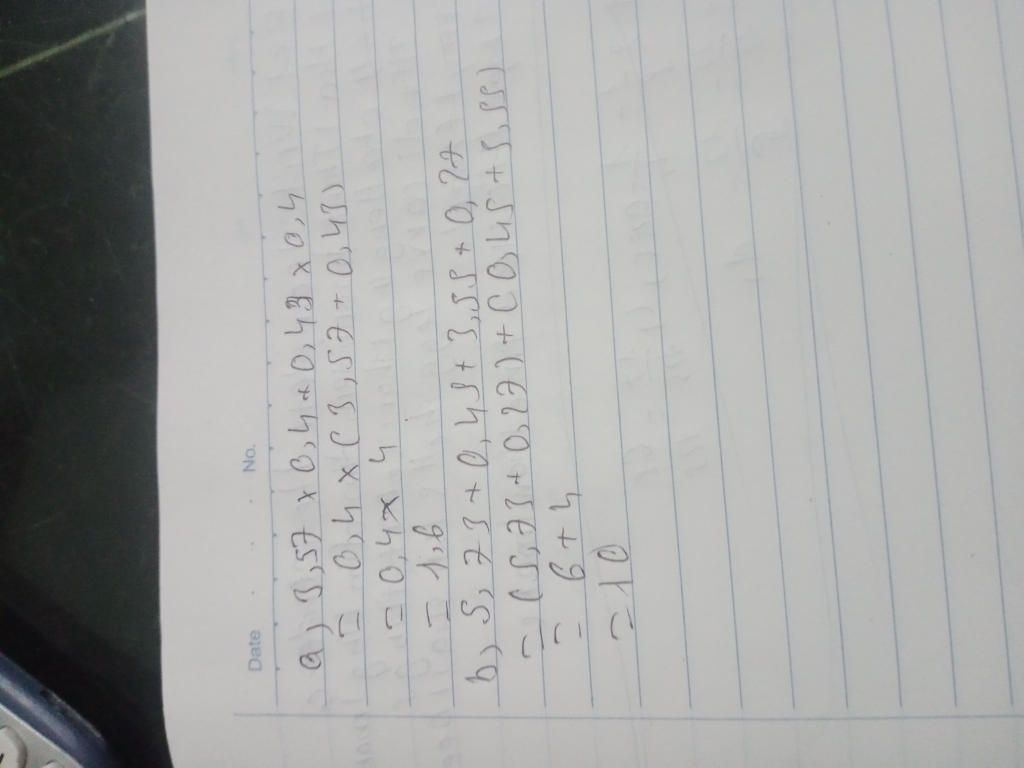 Date No.
a) 3,57 x 0,4 + 0,43 x 0,4
= 0,4 x (3,57 + 0,43)
= 0,4 x 4
= 1,6
b) 5,73 + 0,45 + 3,55 + 0,27
= (5,73 + 0,27) + (0,45 + 5,55)
= 6 + 4
= 10